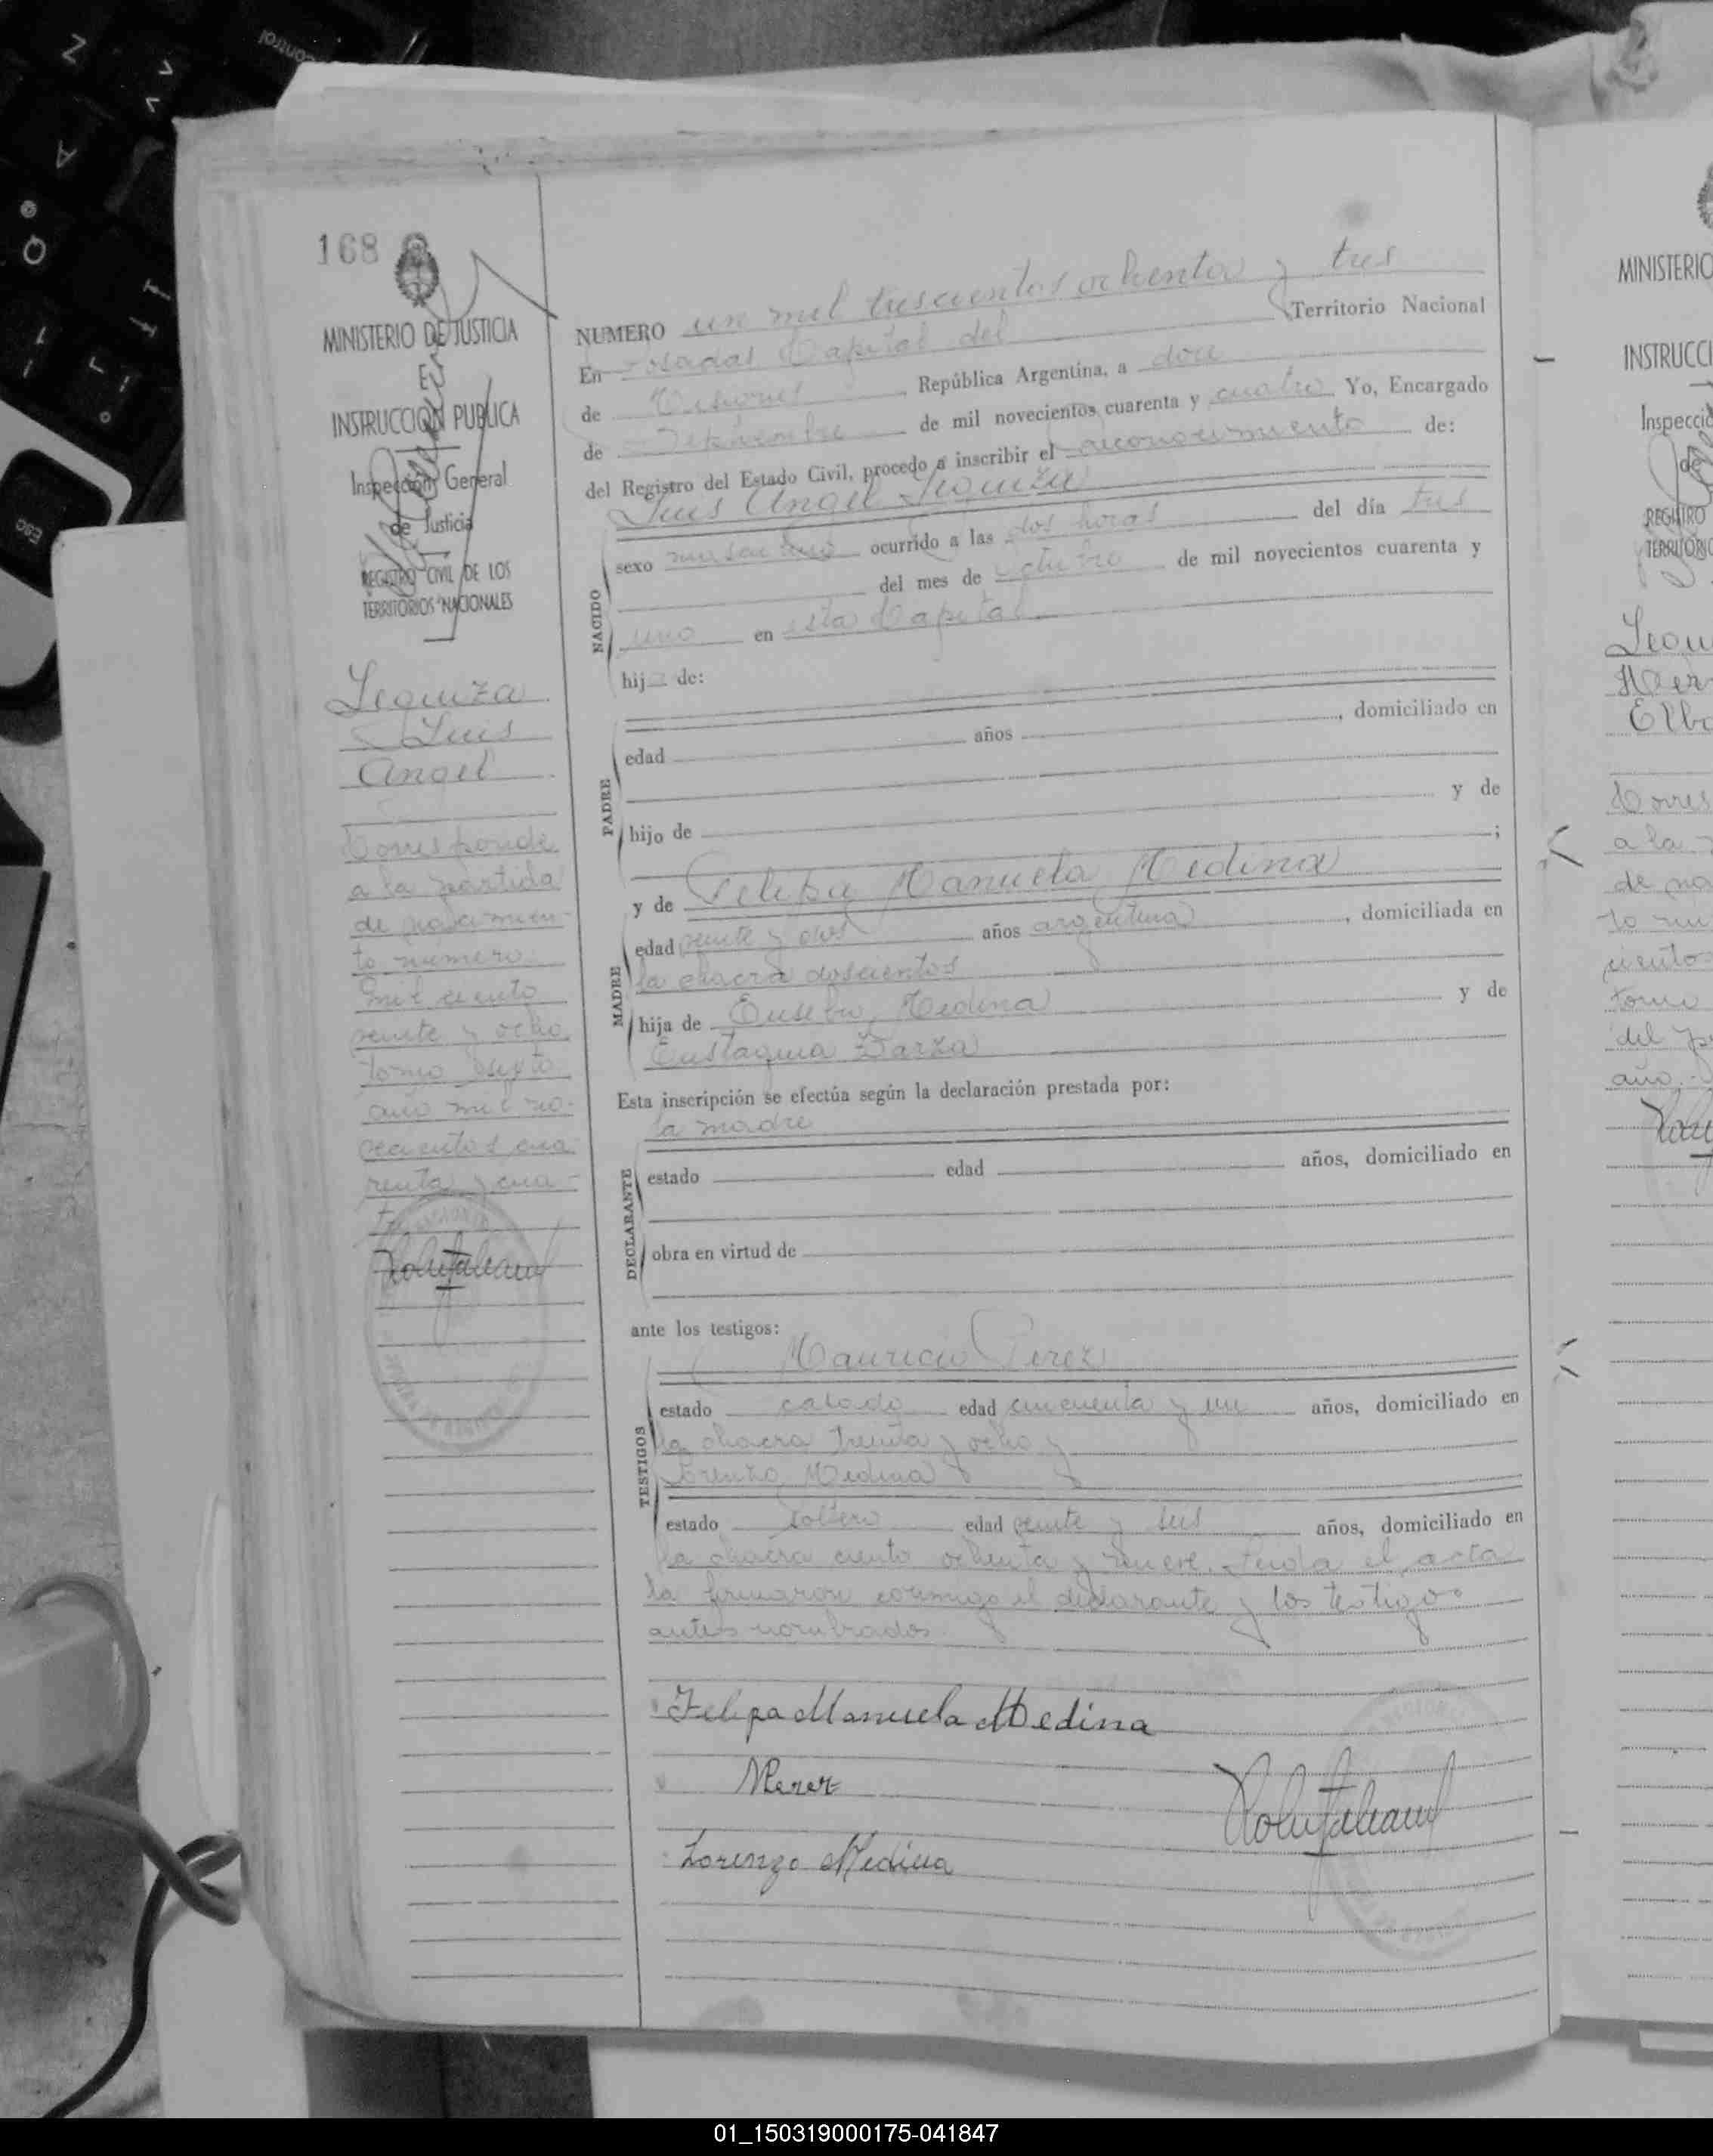 168
MINISTERIO DE JUSTICIA
E
INSTRUCCION PUBLICA
Inspección General
de Justicia
REGISTRO CIVIL DE LOS
TERRITORIOS NACIONALES
Leguiza
Luis
Angel
Corresponde
a la partida
de nacimien-
to numero
mil ciento
veinte y ocho
tomo sexto
año mil no-
vecientos cua-
renta y cua-
tro
NUMERO un mil trescientos ochenta y tres
En Posadas Capital del Territorio Nacional
de Misiones, República Argentina, a doce
de Septiembre de mil novecientos cuarenta y cuatro Yo, Encargado
del Registro del Estado Civil, procedo a inscribir el reconocimiento de:
Luis Angel Leguiza
NACIDO
sexo masculino ocurrido a las dos horas del día tres
del mes de octubre de mil novecientos cuarenta y
uno en esta Capital
hijo de:
PADRE
edad años , domiciliado en
hijo de y de
;
y de Felipa Manuela Medina
MADRE
edad veinte y dos años argentina, domiciliada en
la chacra doscientos
hija de Eusebio Medina y de
Eustaquia Barza
Esta inscripción se efectúa según la declaración prestada por:
la madre
DECLARANTE
estado edad años, domiciliado en
obra en virtud de
ante los testigos:
Mauricio Perez
TESTIGOS
estado casado edad cincuenta y un años, domiciliado en
la chacra treinta y ocho y
Lorenzo Medina
estado soltero edad veinte y seis años, domiciliado en
la chacra ciento ochenta y nueve. Leida el acta
la firmaron conmigo el declarante y los testigos
antes nombrados.
Felipa Manuela Medina
MPerez
Lorenzo Medina
MINISTERIO
INSTRUCCI
Inspecció
de
REGISTRO
TERRITORIO
Legu
Her
Elba
Corres
a la
de na
to nu
cientos
tomo
del p
año.-
01_150319000175-041847